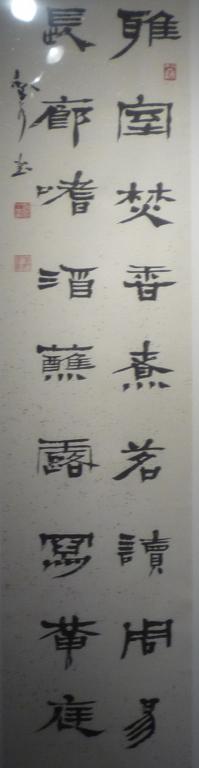 雅室焚香煮茗讀周易
長廊嗜酒蘸露寫黄庭